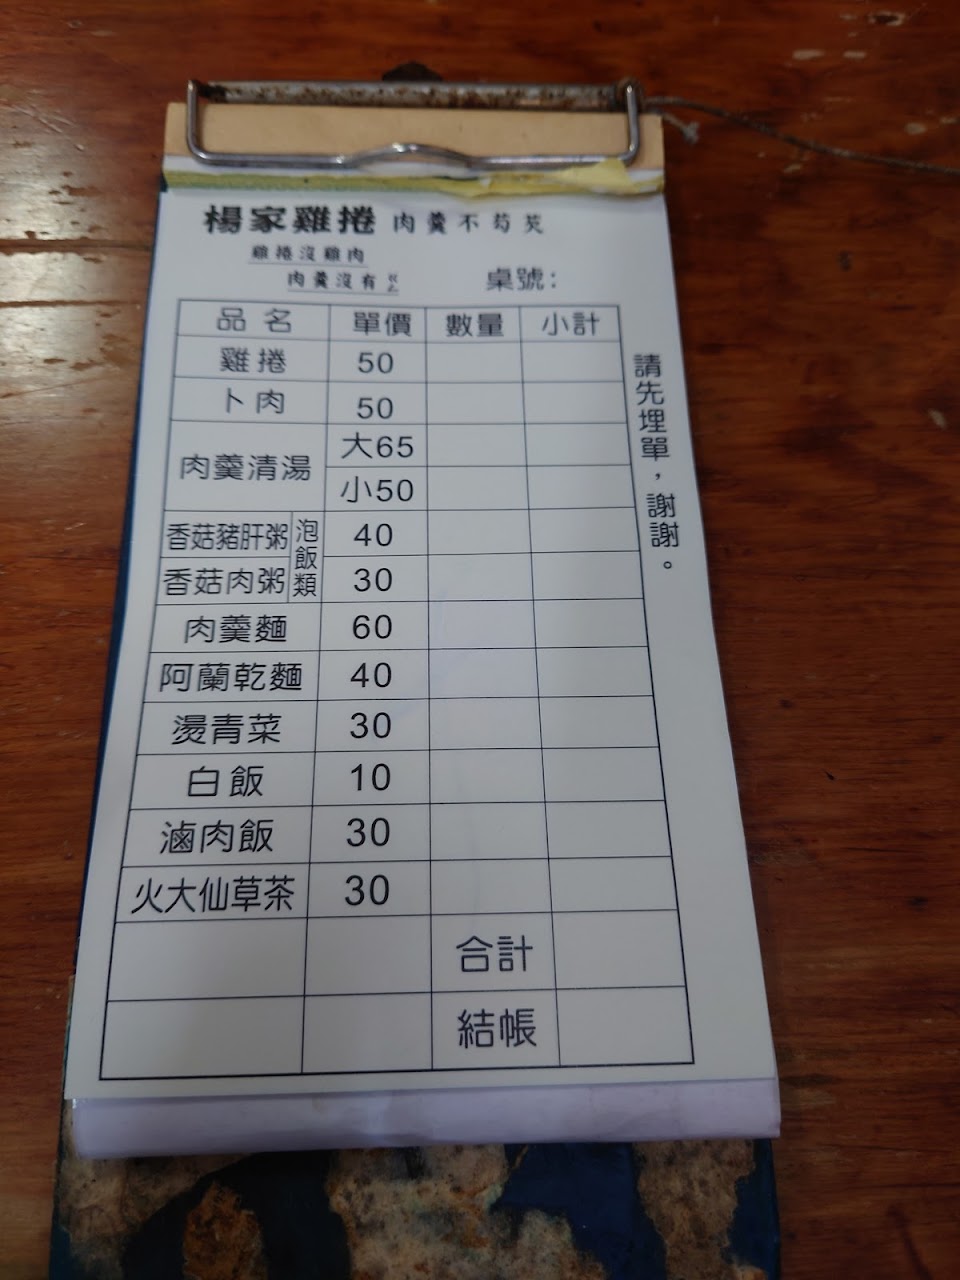 楊家雞捲 肉羹不芶芡
雞捲沒雞肉
肉羹沒有ㄍㄥ
桌號：
品名 單價 數量 小計
雞捲 50
卜肉 50
肉羹清湯 大65
小50
香菇豬肝粥 泡飯類 40
香菇肉粥 30
肉羹麵 60
阿蘭乾麵 40
燙青菜 30
白飯 10
滷肉飯 30
火大仙草茶 30
合計
結帳
請先埋單，謝謝。